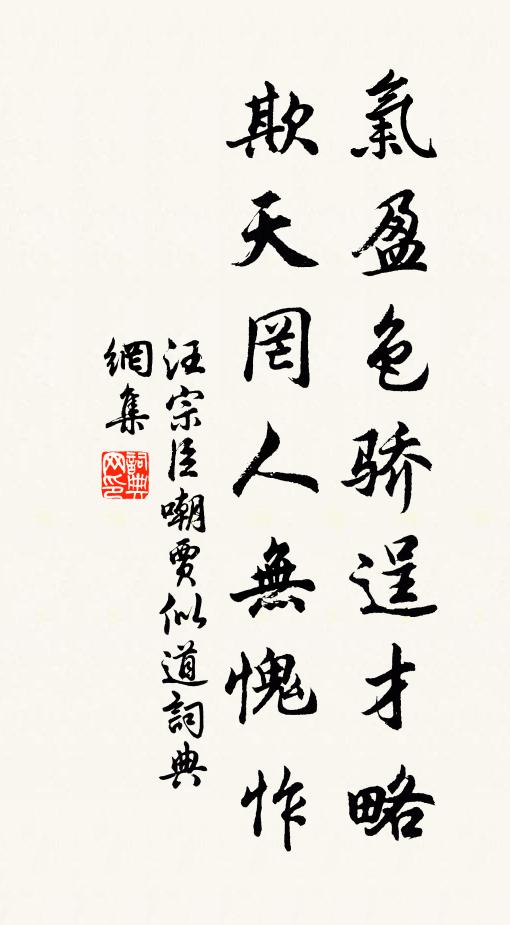 氣盈色骄逞才略
欺天罔人無愧怍
汪宗臣嘲賈似道詞典
網集
詞典網印